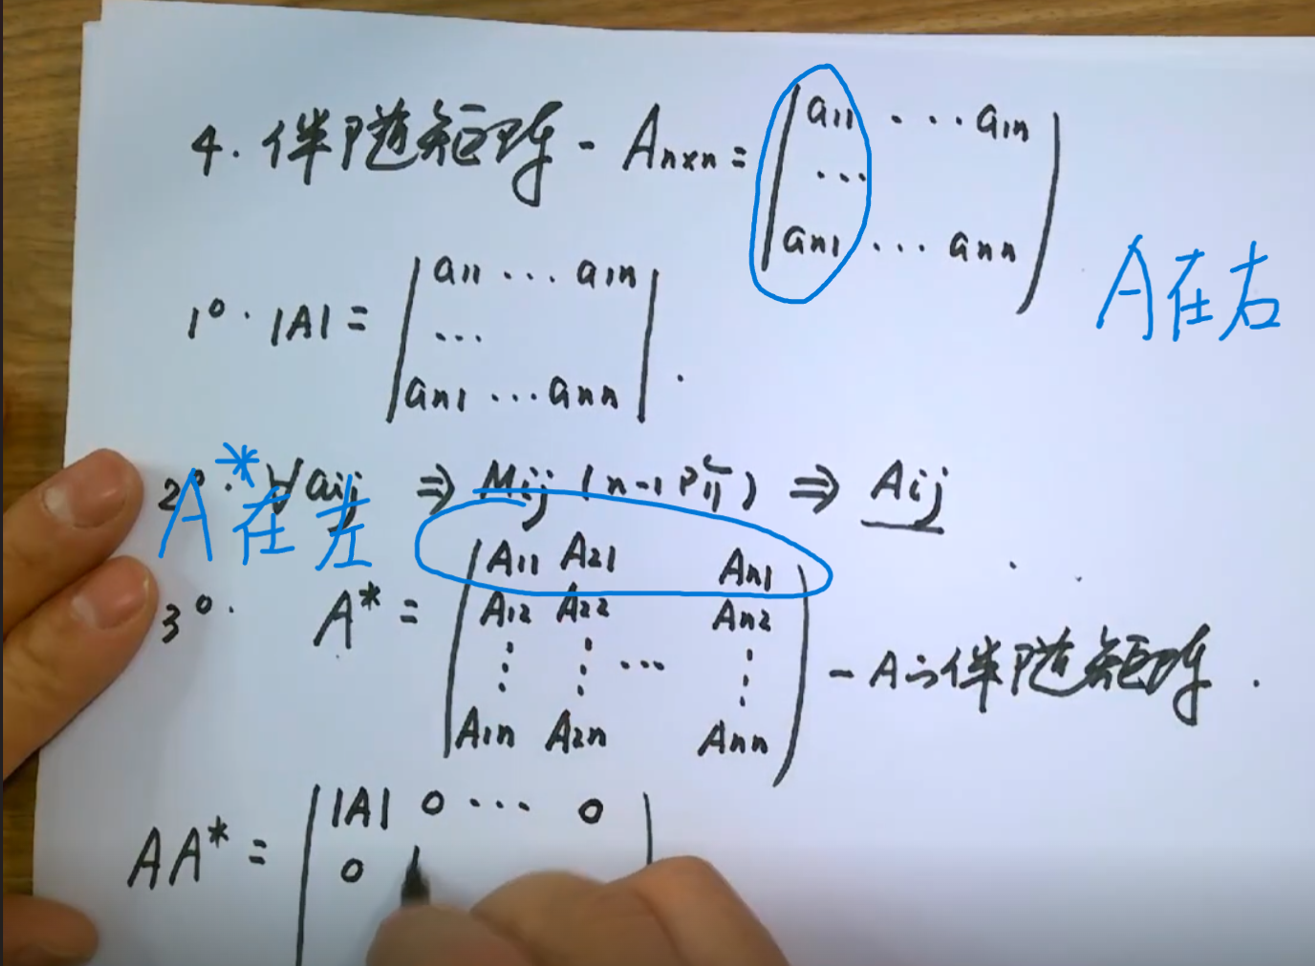 4. 伴随矩阵 - Aₙₓₙ = ( a₁₁ ... a₁ₙ
...
aₙ₁ ... aₙₙ )
A在右
1°. |A| = | a₁₁ ... a₁ₙ |
...
aₙ₁ ... aₙₙ .
2°. ∀aij ⇒ Mij (n-1阶) ⇒ Aij
A*在左
3°. A* = ( A₁₁ A₂₁ Aₙ₁
A₁₂ A₂₂ Aₙ₂
⋮ ⋮ ... ⋮
A₁ₙ A₂ₙ Aₙₙ ) - A的伴随矩阵.
AA* = ( |A| 0 ... 0
0